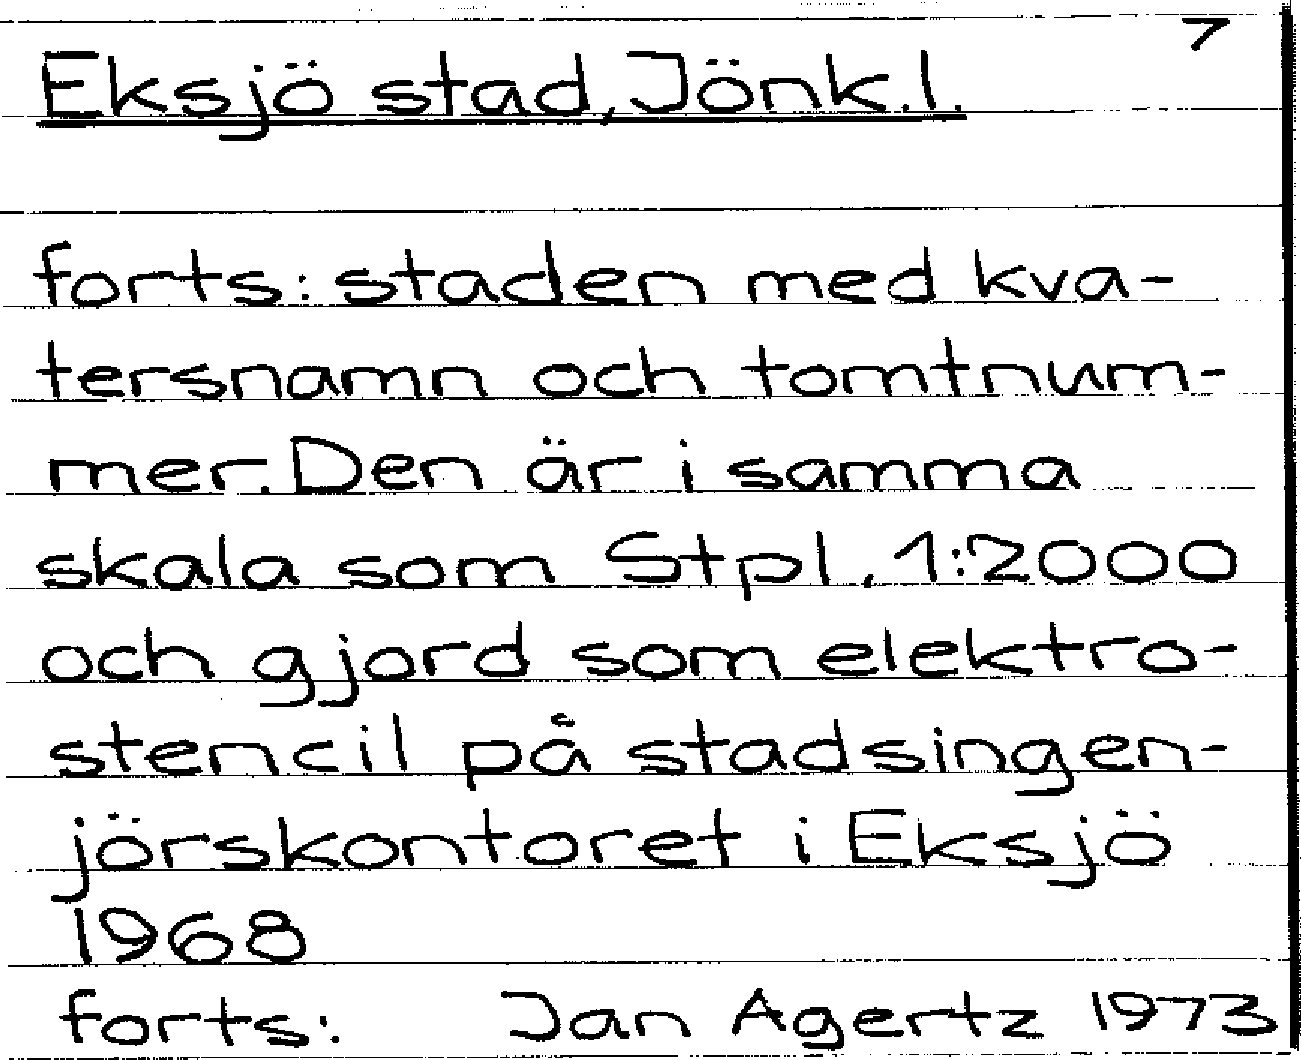 7
Eksjö stad, Jönk.l.
forts: staden med kva-
tersnamn och tomtnum-
mer. Den är i samma
skala som Stpl. 1:2000
och gjord som elektro-
stencil på stadsingen-
jörskontoret i Eksjö
1968
forts: Jan Agertz 1973